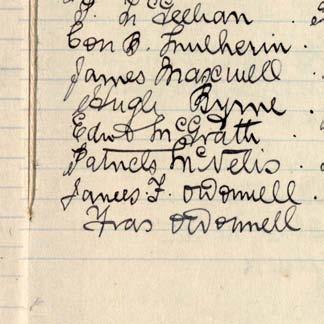 McGeehan
Con B. Mulherin
James Maxwell
Hugh Byrne
Edwd McGrath
Patrick McNelis
James F. O'Donnell
Fras O'Donnell